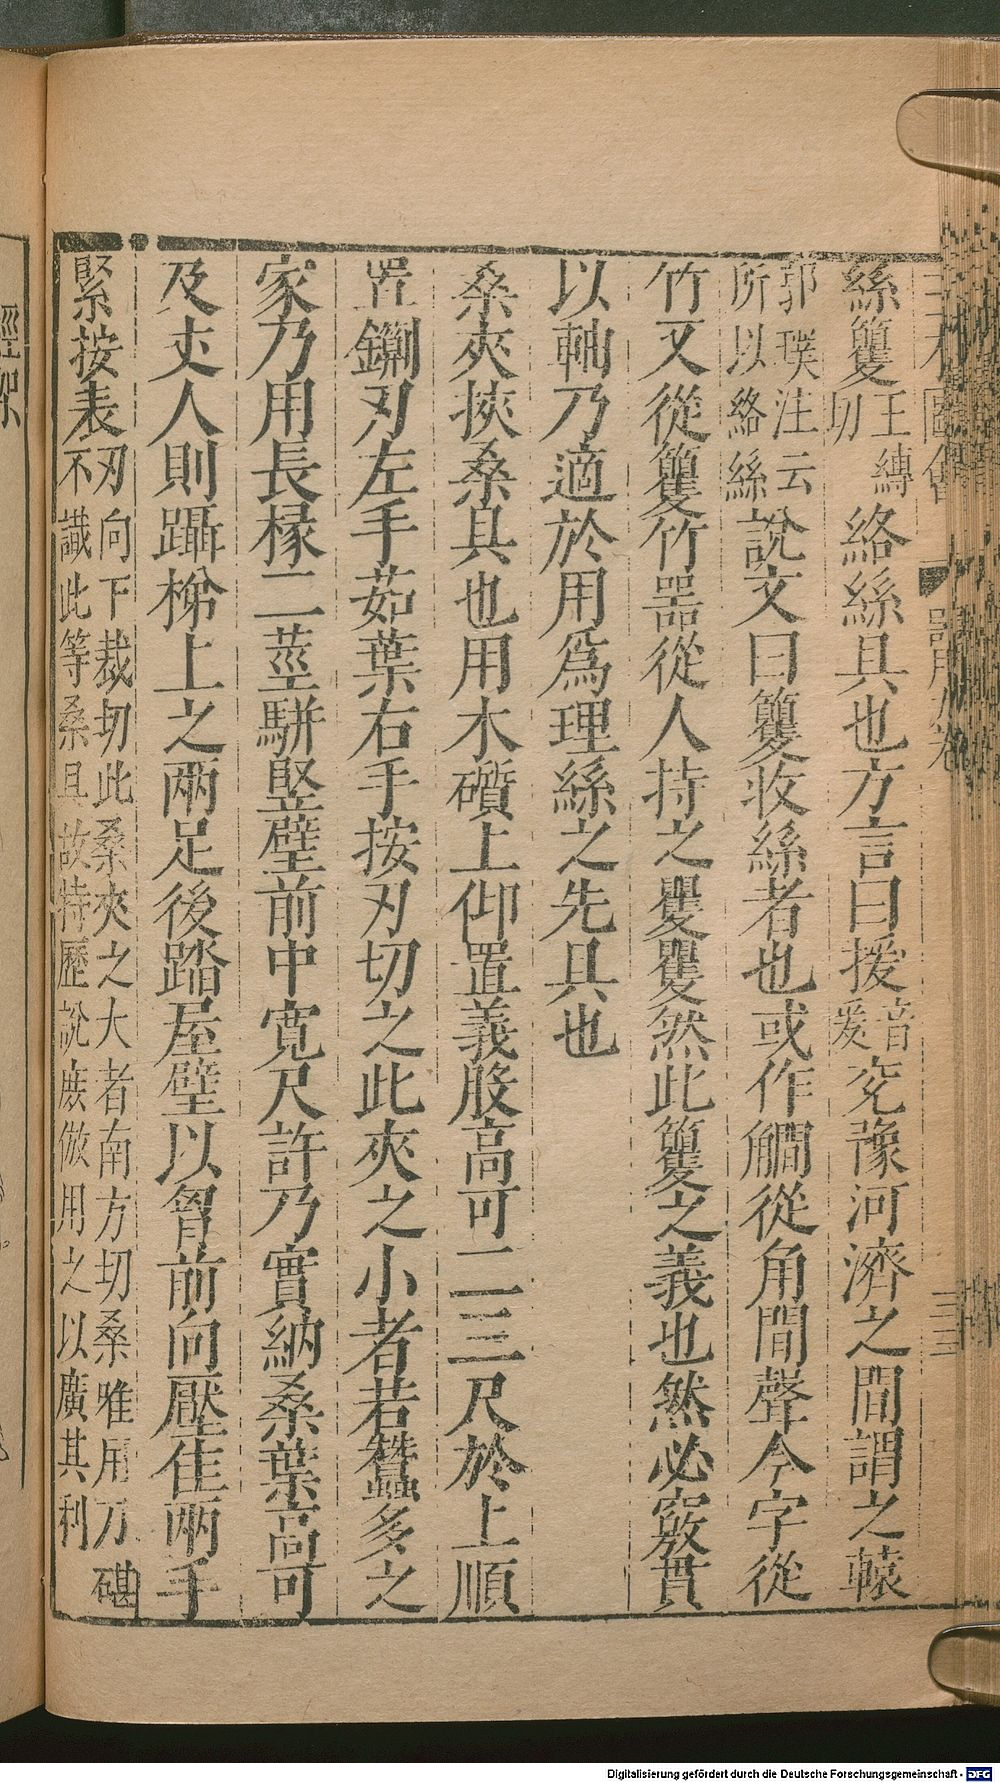 三才圖會 器用九卷 三三
絲籰王縛切 絡絲具也方言曰援音爰兗豫河濟之間謂之轅
郭璞注云所以絡絲說文曰籰收絲者也或作䚀從角間聲今字從
竹又從籰竹器從人持之矍矍然此籰之義也然必竅貫
以軸乃適於用爲理絲之先具也
桑夾挾桑具也用木礩上仰置義股高可二三尺於上順
置鍘刃左手茹葉右手按刃切之此夾之小者若蠶多之
家乃用長椽二莖駢竪壁前中寛尺許乃實納桑葉高可
及丈人則躡梯上之兩足後踏屋壁以胷前向壓住兩手
緊按長刃向下裁切此桑夾之大者南方切桑唯用刀碪
不識此等桑具故特歷說庶倣用之以廣其利
Digitalisierung gefördert durch die Deutsche Forschungsgemeinschaft - DFG